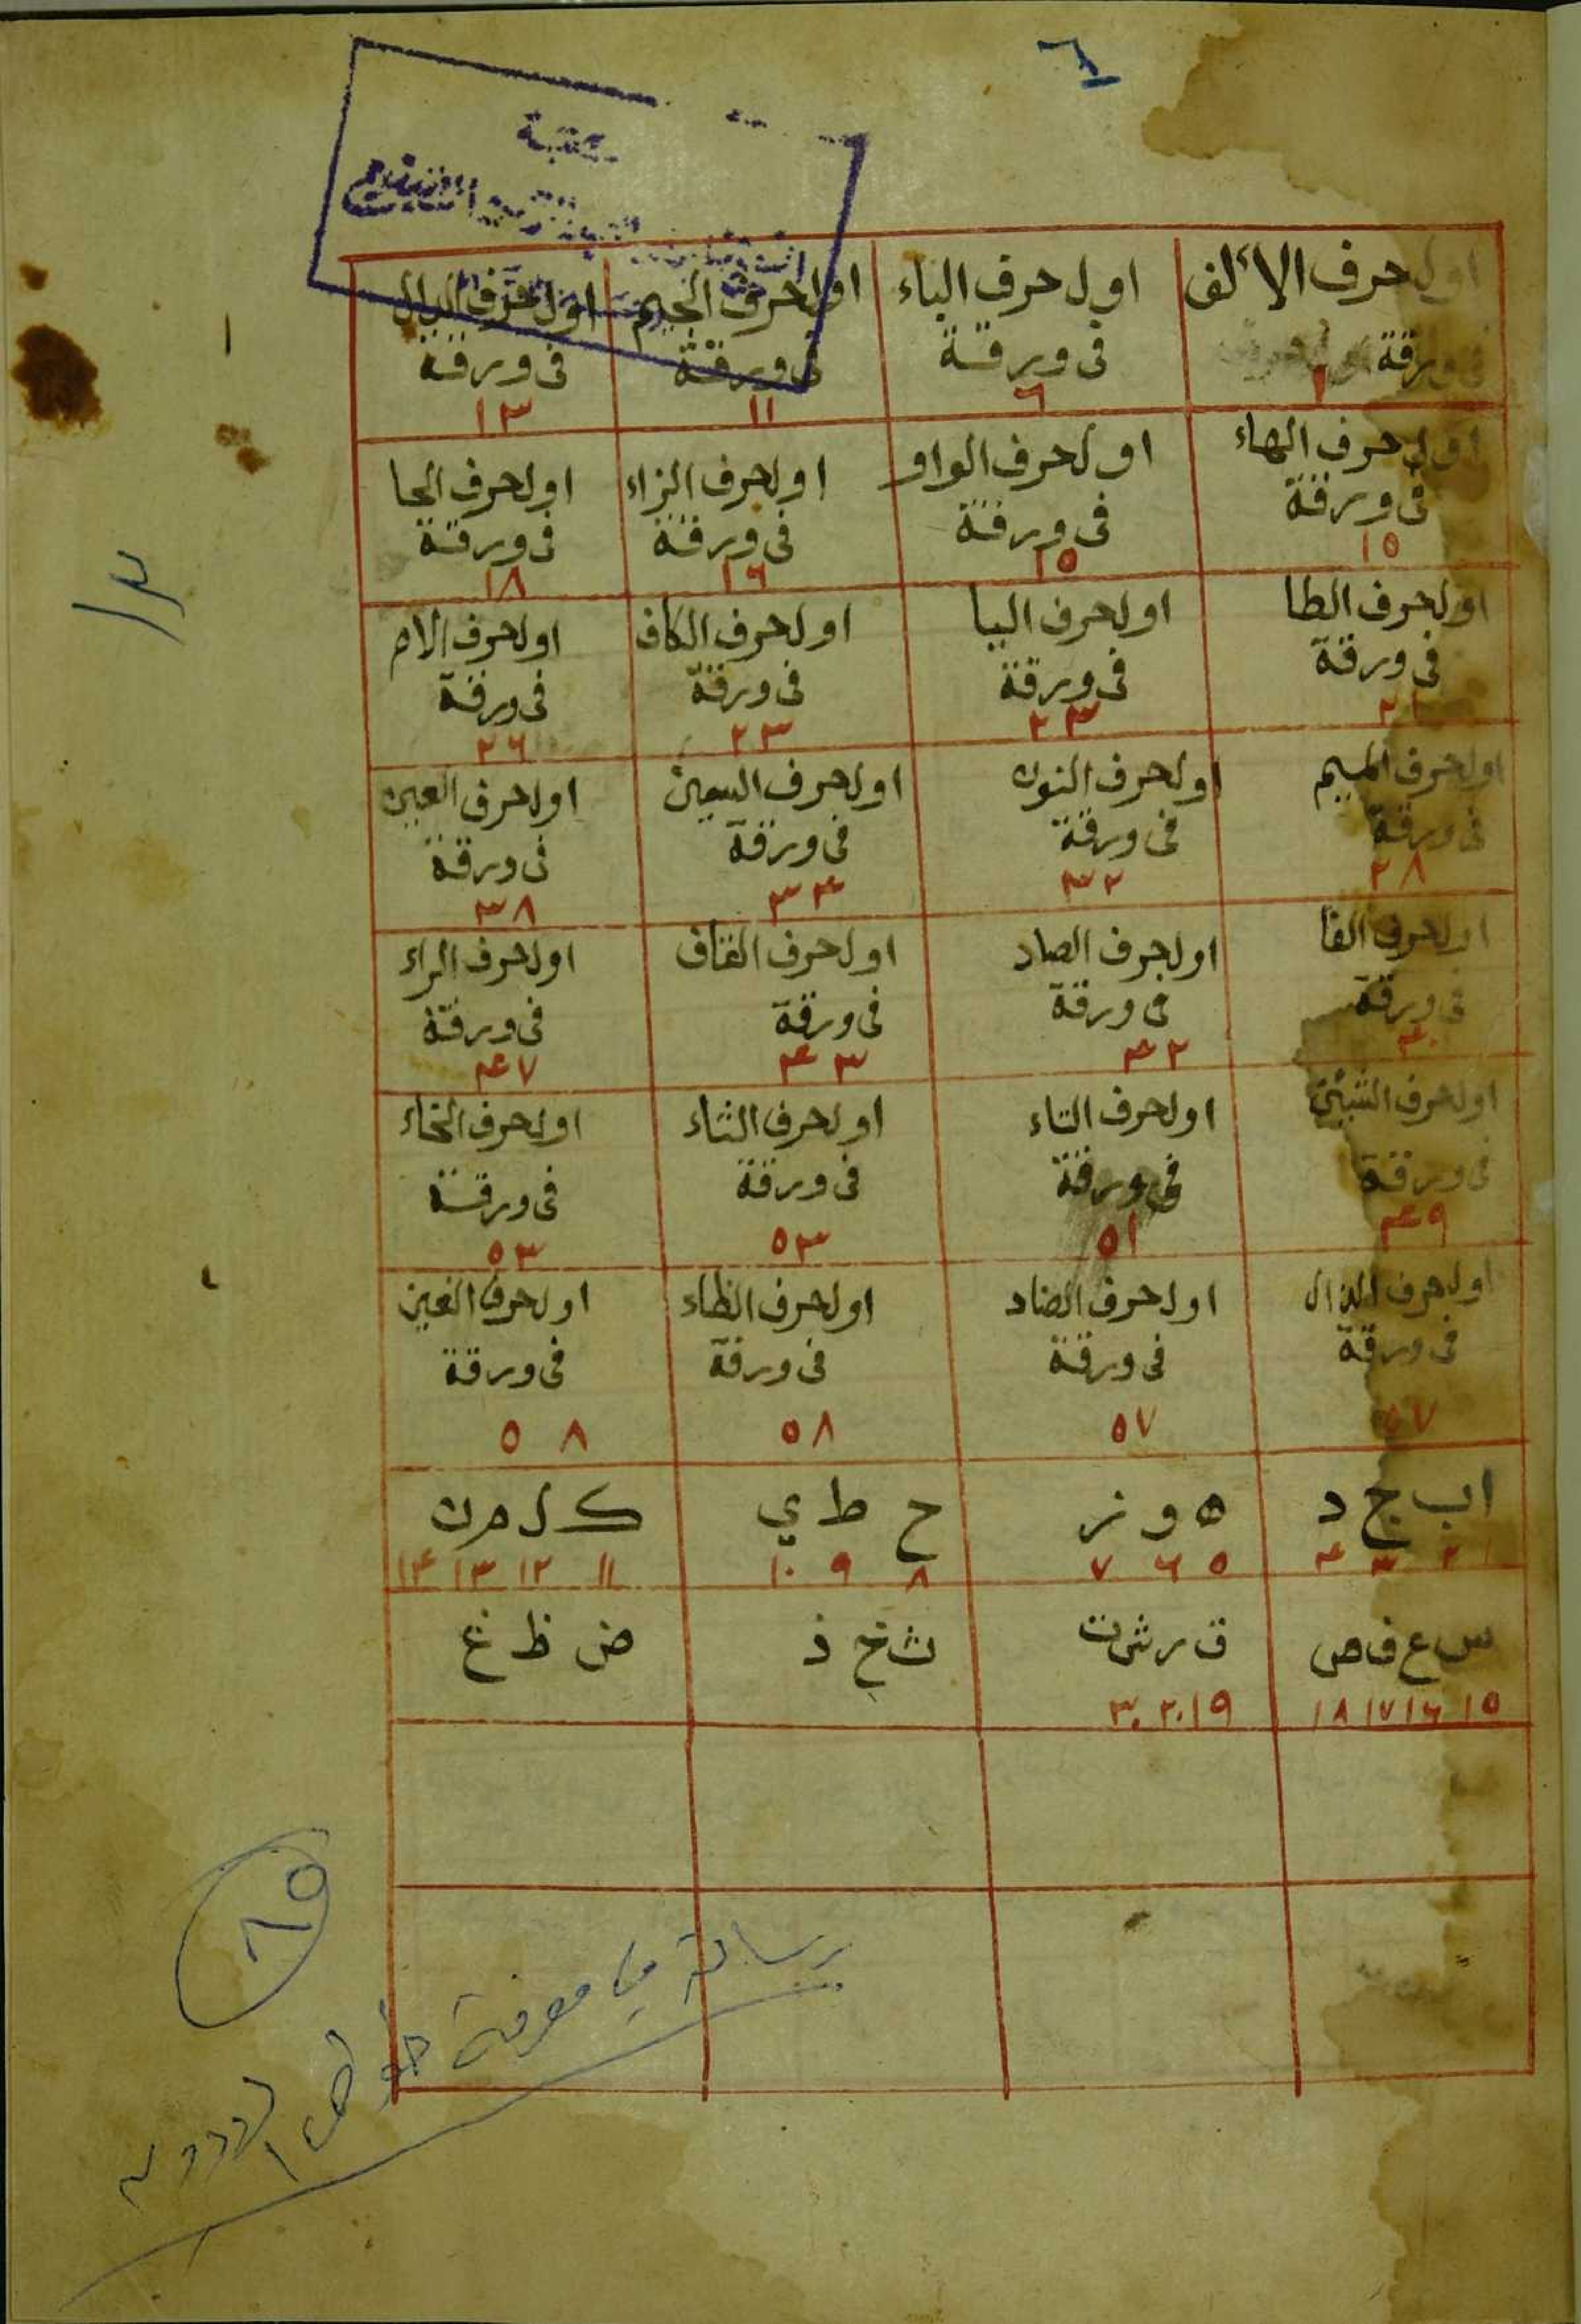 ٦
مكتبة
اول حرف الألف
في ورقة
١
اول حرف الباء
في ورقة
٦
اول حرف الجيم
في ورقة
١١
اول حرف الدال
في ورقة
١٣
اول حرف الهاء
في ورقة
١٥
اول حرف الواو
في ورقة
١٥
اول حرف الزاء
في ورقة
١٦
اول حرف الحا
في ورقة
١٨
اول حرف الطا
في ورقة
اول حرف اليا
في ورقة
٢٣
اول حرف الكاف
في ورقة
٢٣
اول حرف الام
في ورقة
٢٦
اول حرف الميم
في ورقة
٢٨
اول حرف النون
في ورقة
٣٢
اول حرف السين
في ورقة
٣٤
اول حرف العين
في ورقة
٣٨
اول حرف الفا
في ورقة
٤٠
اول حرف الصاد
في ورقة
٤٢
اول حرف القاف
في ورقة
٤٣
اول حرف الراء
في ورقة
٤٧
اول حرف الشين
في ورقة
٤٩
اول حرف التاء
في ورقة
٥١
اول حرف الثاء
في ورقة
٥٣
اول حرف الخاء
في ورقة
٥٣
اول حرف الذال
في ورقة
٥٧
اول حرف الضاد
في ورقة
٥٧
اول حرف الظاء
في ورقة
٥٨
اول حرف الغين
في ورقة
٥٨
ا ب ج د
١ ٢ ٣ ٤
ه و ز
٥ ٦ ٧
ح ط ي
٨ ٩ ١٠
ك ل م ن
١١ ١٢ ١٣ ١٤
س ع ف ص
١٥ ١٦ ١٧ ١٨
ق ر ش ت
١٩ ٢٠ ٣٠
ث خ ذ
ض ظ غ
رسالة في معرفة خواص الادوية
٨٥